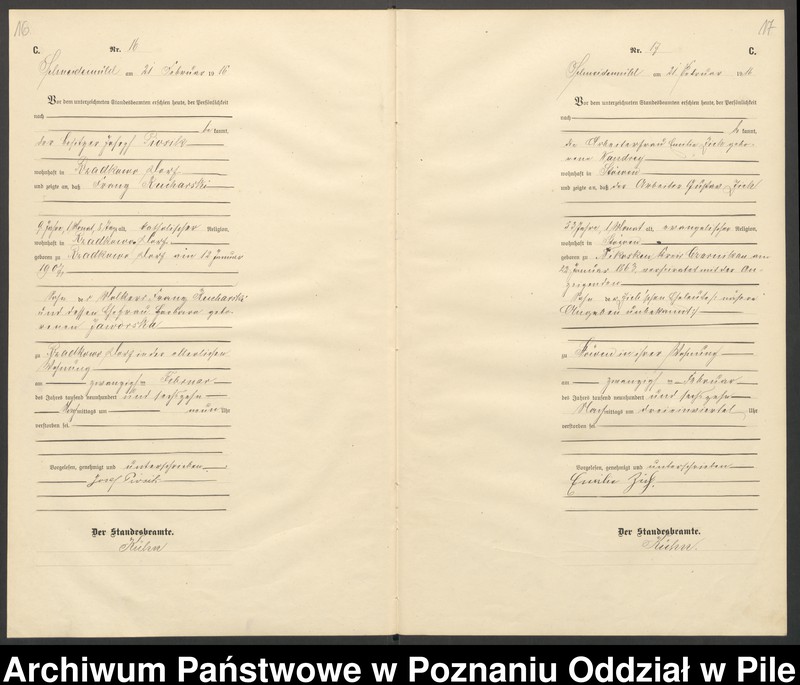 16
C.
Nr. 16
Schneidemühl am 21 Februar 1916
Vor dem unterzeichneten Standesbeamten erschien heute, der Persönlichkeit
nach
be kannt,
der Besitzer Josef
wohnhaft in Rzadkowo Dorf
und zeigte an, daß Franz Kucharski
9 Jahre, 1 Monat, alt, katholischer Religion,
wohnhaft in Rzadkowo Dorf
geboren zu Rzadkowo Dorf am 12 Januar
1907
Sohn des Franz Kucharski
und dessen Ehefrau Barbara gebo-
renen Jaworska
zu Rzadkowo Dorf in der elterlichen
Wohnung
am zwanzigsten Februar
des Jahres tausend neunhundert und sechzehn
mittags um neun Uhr
verstorben sei.
Vorgelesen, genehmigt und unterschrieben
Josef
Der Standesbeamte.
Kühn
17
Nr. 17
C.
Schneidemühl am 21 Februar 1916
Vor dem unterzeichneten Standesbeamten erschien heute, der Persönlichkeit
nach
be kannt,
die Arbeiterfrau Emilie gebo-
rene
wohnhaft in Stöwen
und zeigte an, daß der Arbeiter Gustav
Jahre, 1 Monat alt, evangelischer Religion,
wohnhaft in Stöwen
geboren zu Kreis Czarnikau am
Januar 1863, verheiratet mit der An-
zeigenden
Sohn der Eheleute
Angaben unbekannt
zu Stöwen in ihrer Wohnung
am zwanzigsten Februar
des Jahres tausend neunhundert und sechzehn
Nachmittags um dreieinviertel Uhr
verstorben sei.
Vorgelesen, genehmigt und unterschrieben
Emilie
Der Standesbeamte.
Kühn
Archiwum Państwowe w Poznaniu Oddział w Pile